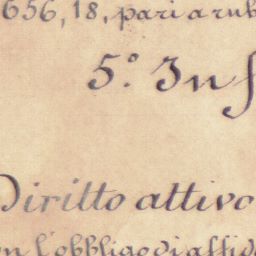 656, 18, pari a rub
5.° Inf
Diritto attivo
on l'obbligo di affiv